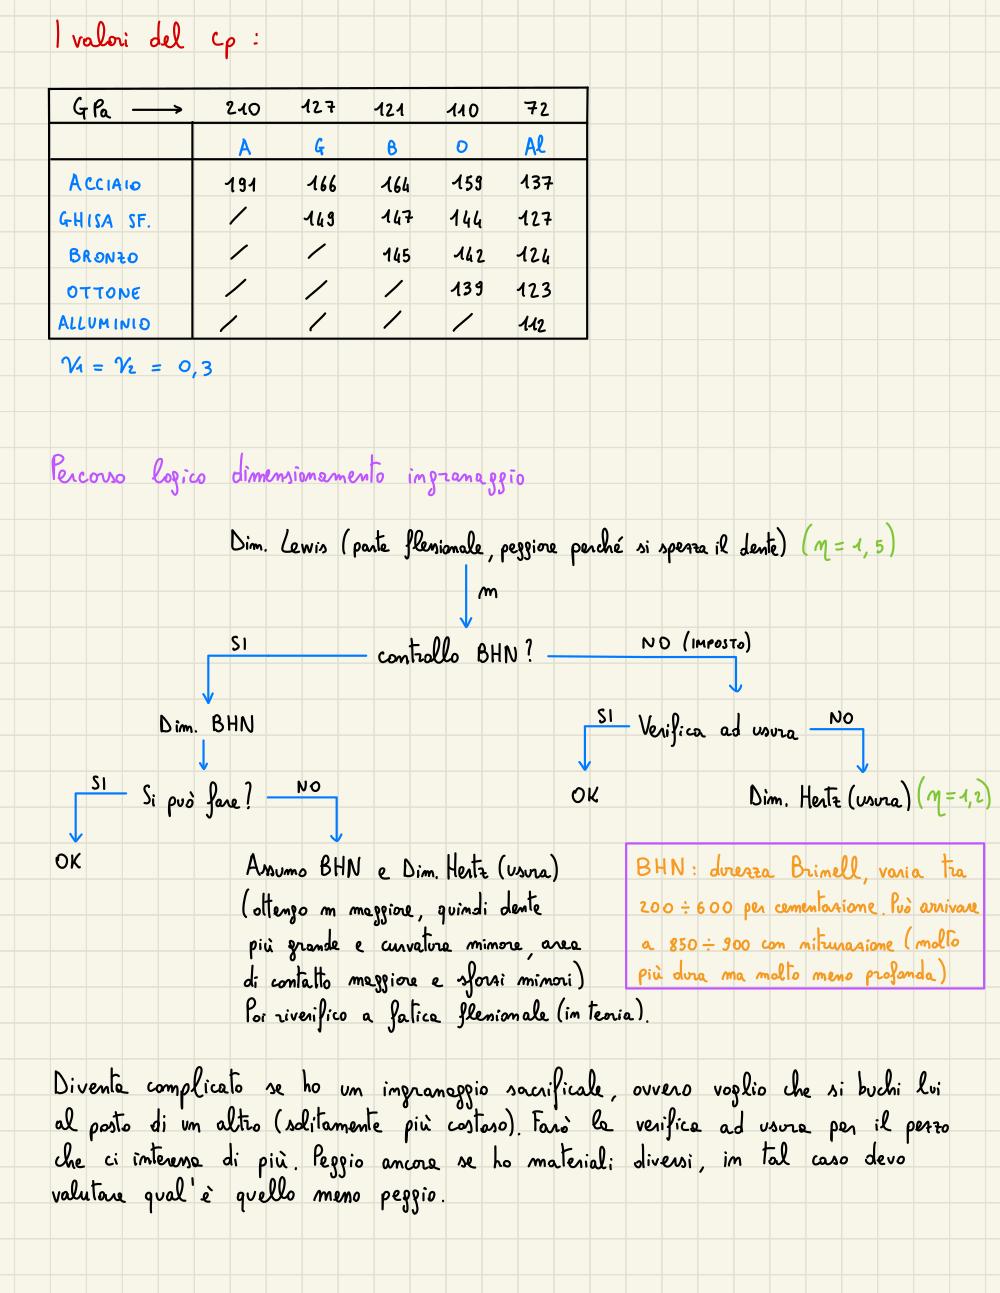 I valori del cp :
GPa → 210 127 121 110 72
A G B O Al
ACCIAIO 191 166 164 159 137
GHISA SF. / 149 147 144 127
BRONZO / / 145 142 124
OTTONE / / / 139 123
ALLUMINIO / / / / 112
ν1 = ν2 = 0,3
Percorso logico dimensionamento ingranaggio
Dim. Lewis (parte flessionale, peggiore perché si spezza il dente) (η = 1,5)
m
SI controllo BHN? NO (IMPOSTO)
Dim. BHN
SI Verifica ad usura NO
SI Si può fare? NO
OK Dim. Hertz (usura) (η=1,2)
OK
Assumo BHN e Dim. Hertz (usura)
(ottengo m maggiore, quindi dente
più grande e curvatura minore, area
di contatto maggiore e sforzi minori)
Poi riverifico a fatica flessionale (in teoria).
BHN: durezza Brinell, varia tra
200÷600 per cementazione. Può arrivare
a 850÷900 con nitrurazione (molto
più dura ma molto meno profonda)
Diventa complicato se ho un ingranaggio sacrificale, ovvero voglio che si buchi lui
al posto di un altro (solitamente più costoso). Farò la verifica ad usura per il pezzo
che ci interessa di più. Peggio ancora se ho materiali diversi, in tal caso devo
valutare qual'è quello meno peggio.